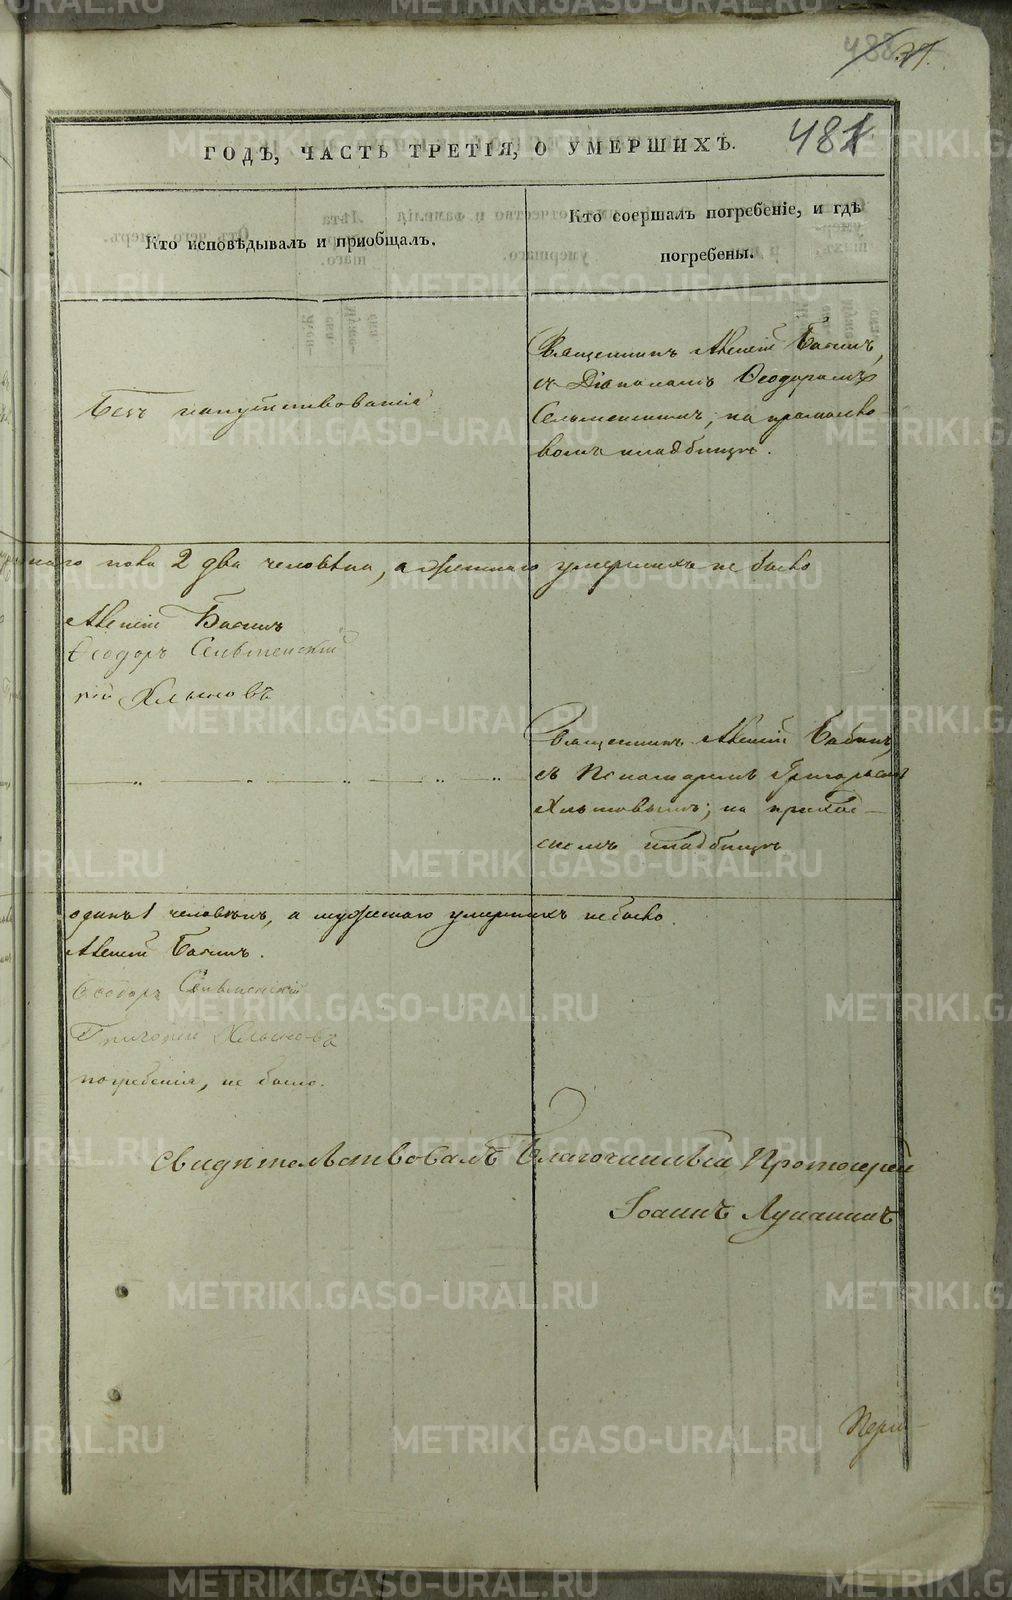 481
ГОДЪ, ЧАСТЬ ТРЕТІЯ, О УМЕРШИХЪ.
Кто исповѣдывалъ и пріобщалъ.
Кто соершалъ погребеніе, и гдѣ
погребены.
Безъ напутствованія
Священникъ Алексій Бабинъ,
съ Діакономъ Ѳеодоромъ
Сельменскимъ; на
кладбищѣ.
пола 2 два человѣка, а женскаго умершихъ не было
Алексій Бабинъ
Ѳеодоръ Сельменскій
рій Хлыновъ
Священникъ Алексій Бабинъ,
съ Пономаремъ Григоріемъ
Хлыновымъ; на приход-
скомъ кладбищѣ
одинъ 1 человѣкъ, а мужескаго умершихъ небыло.
Алексій Бабинъ.
Ѳеодоръ Сельменскій
Григорій Хлыновъ
погребенія, не было.
Свидѣтельствовалъ Благочинный Протоіерей
Іоаннъ Луканинъ
METRIKI.GASO-URAL.RU